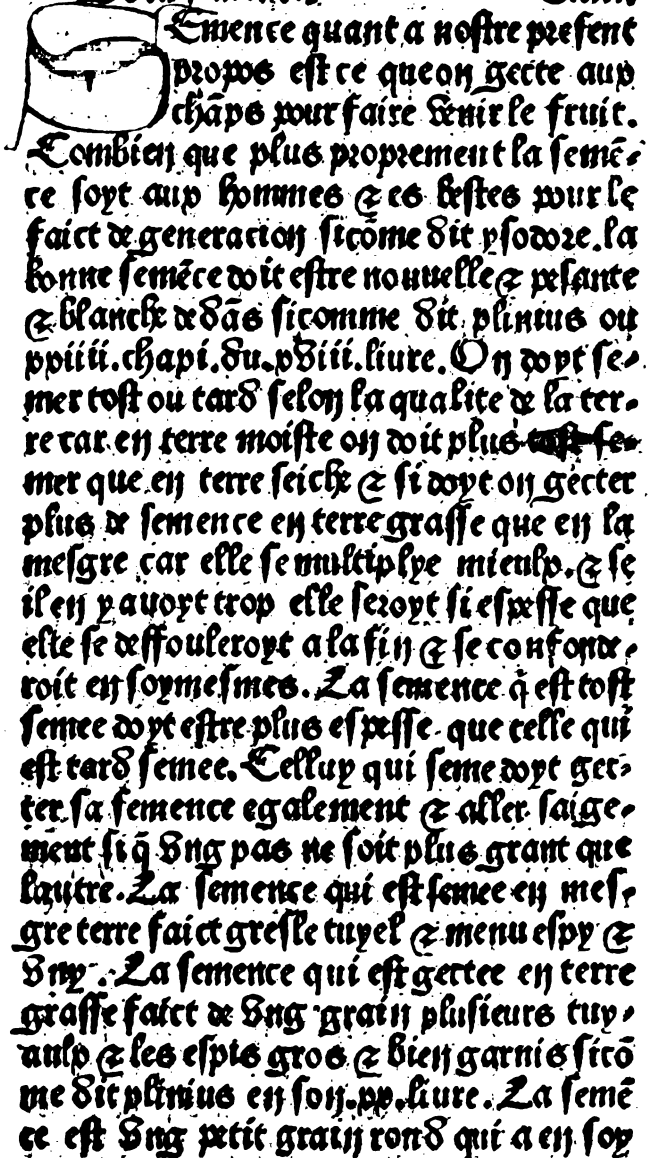 Semence quant a nostre present
propos est ce que on gecte aux
chãps pour faire venir le fruit.
Combien que plus proprement la semẽ-
ce soyt aux hommes & es bestes pour le
faict de generacion sicõme dit ysodore. la
bonne semẽce doit estre nouuelle & pesante
& blanche dedãs sicomme dit plinius ou
xxiiii. chapi. du. xviii. liure. On doyt se-
mer tost ou tard selon la qualite de la ter-
re car en terre moiste on doit plus tost se-
mer que en terre seiche & si doyt on gecter
plus de semence en terre grasse que en la
mesgre car elle se multiplye mieulx. & se
il en y auoyt trop elle seroyt si espesse que
elle se deffouleroyt a la fin & se confonde-
roit en soymesmes. La semence q̃ est tost
semee doyt estre plus espesse que celle qui
est tard semee. Celluy qui seme doyt gec-
ter sa semence egalement & aller saige-
ment si q̃ vng pas ne soit plus grant que
lautre. La semence qui est semee en mes-
gre terre faict gresle tuyel & menu espy &
vny. La semence qui est gectee en terre
grasse faict de vng grain plusieurs tuy-
aulx & les espis gros & bien garnis sicõ
me dit plinius en son. xx. liure. La semẽ
ce est vng petit grain rond qui a en soy